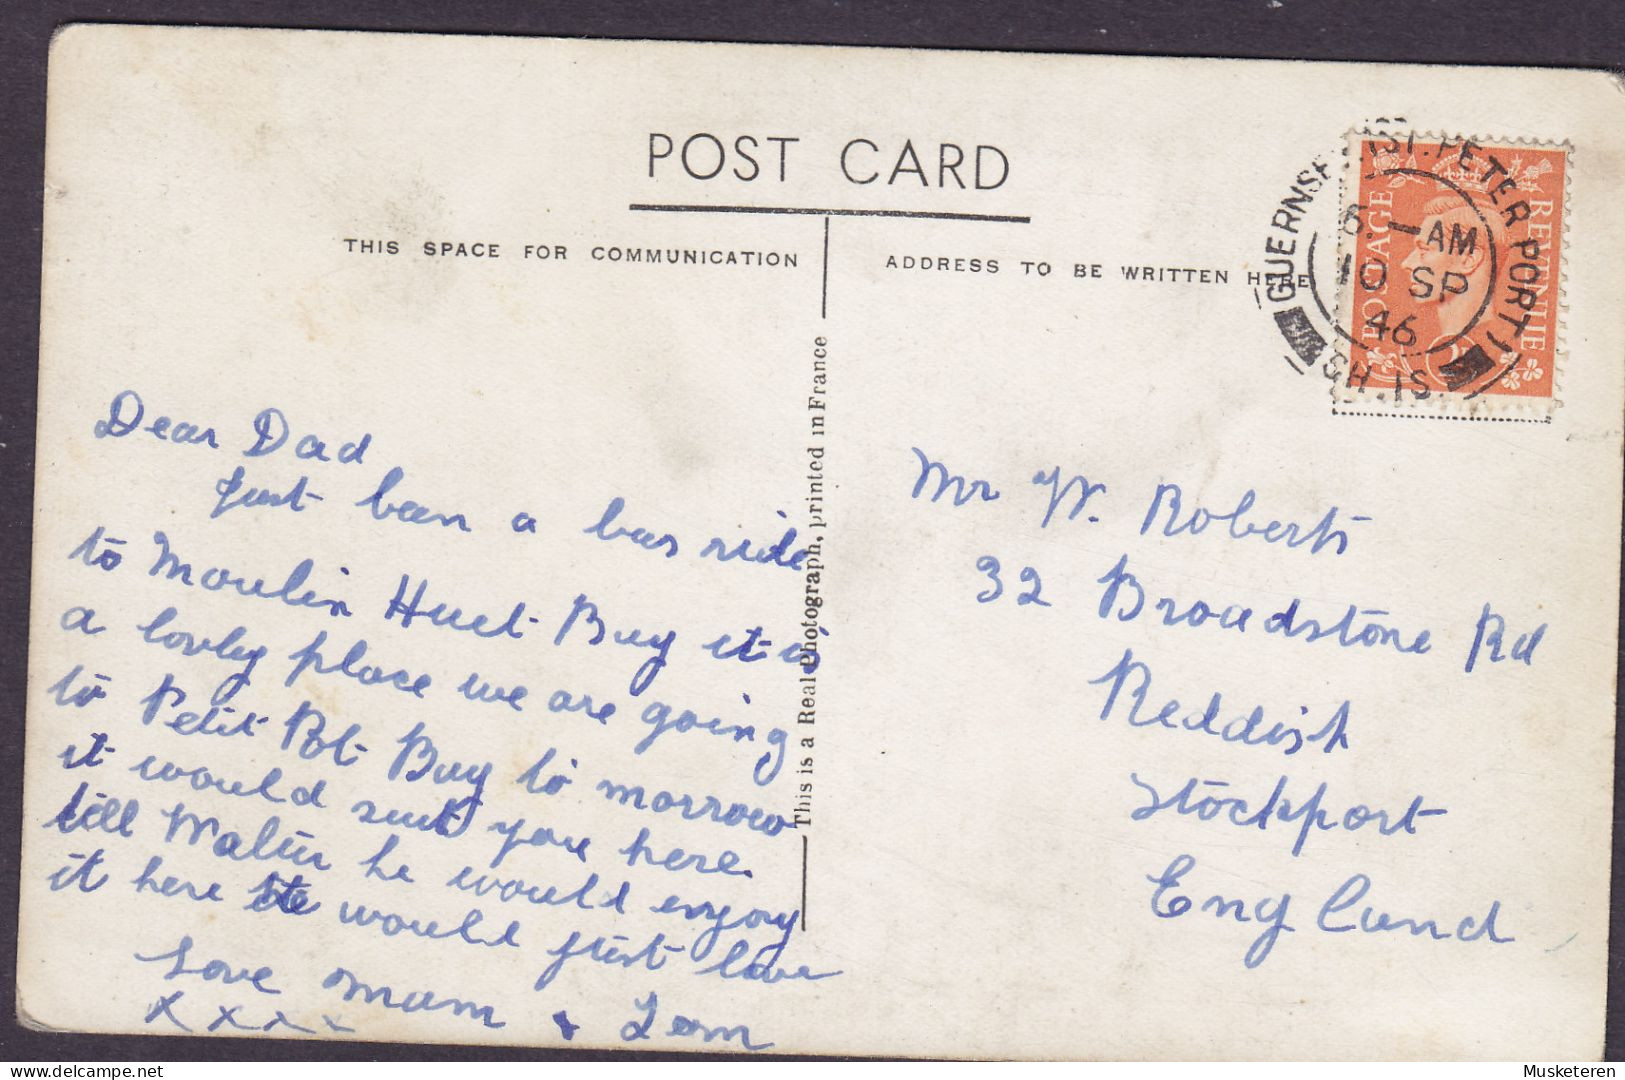 POST CARD
THIS SPACE FOR COMMUNICATION
ADDRESS TO BE WRITTEN HERE
GUERNSEY (ST. PETER PORT)
6.—AM
10 SP
46
CH. IS.
POSTAGE
REVENUE
This is a Real Photograph, printed in France
Dear Dad
Just been a bus ride
to Moulin Huet Bay it is
a lovley place we are going
to Petit Bot Bay to morrow
it would suit you here.
till Walter he would enjoy
it here He would just love
Love Mam &
x x x x
Mr W. Roberts
32 Broadstone Rd
Reddish
Stockport
England
Musketeren